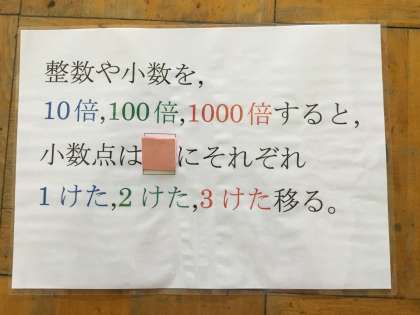 整数や小数を,
10倍,100倍,1000倍すると,
小数点は にそれぞれ
1けた,2けた,3けた移る。